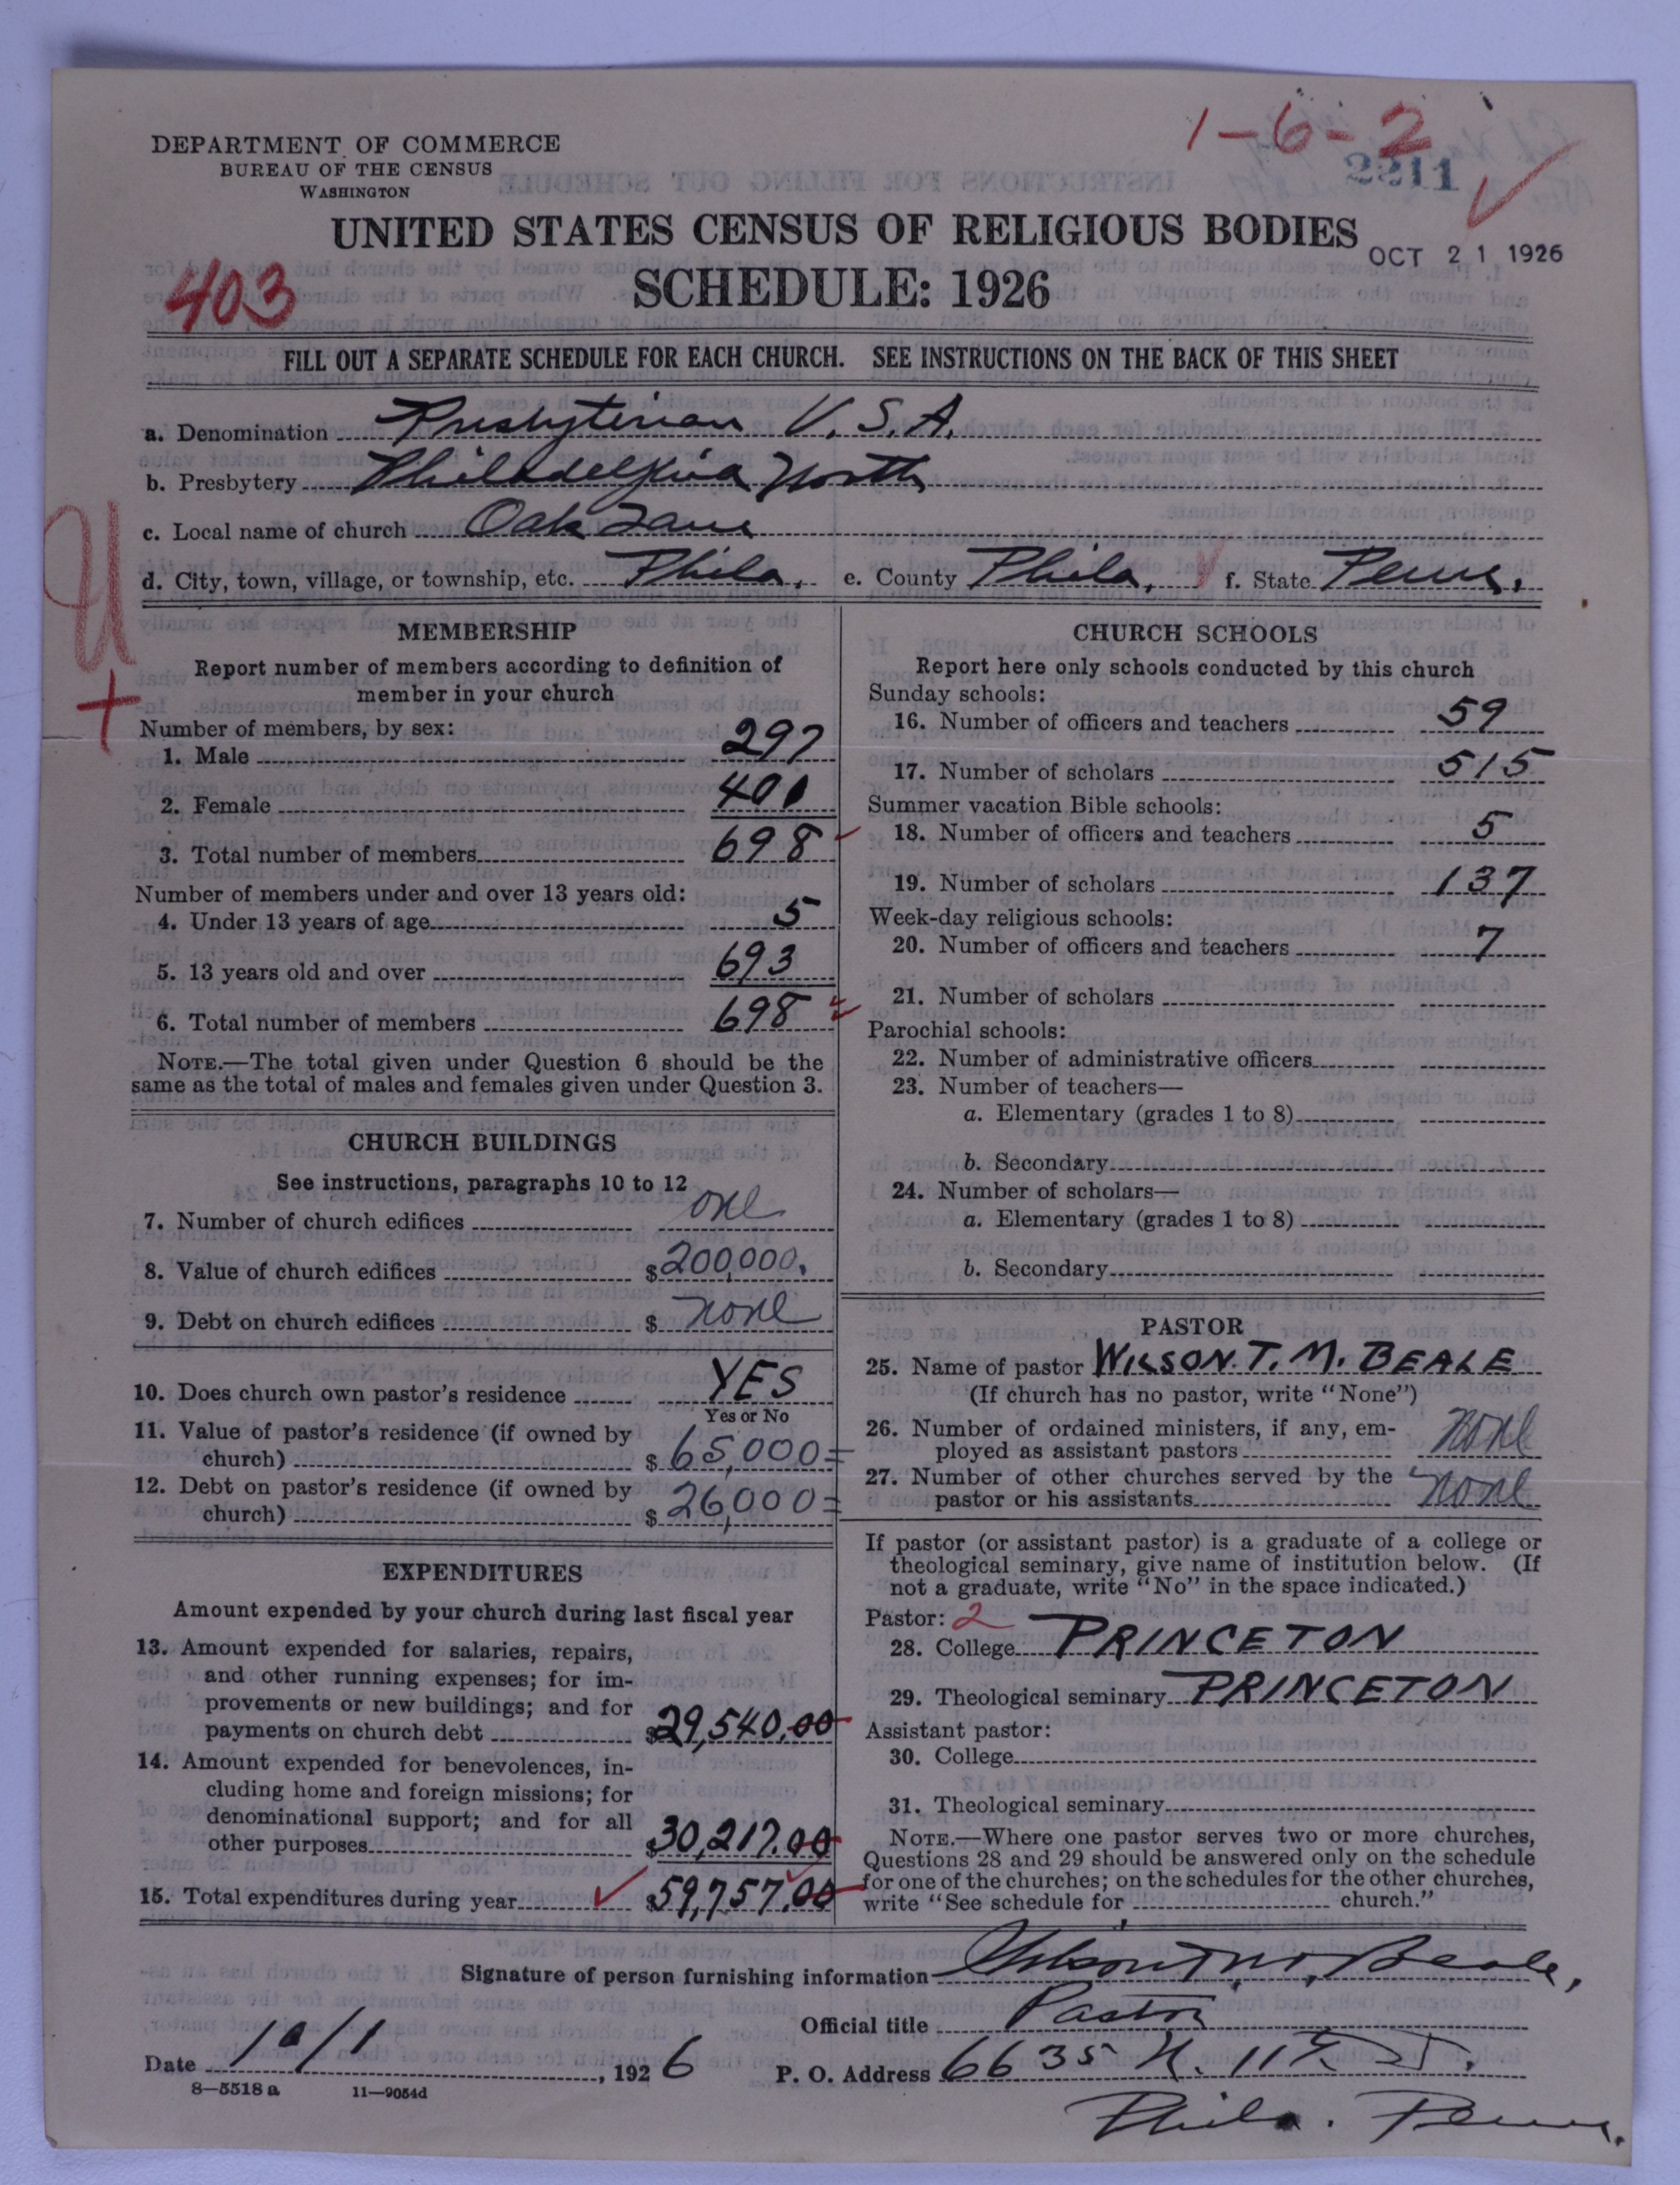 1-6-2
2211
DEPARTMENT OF COMMERCE
BUREAU OF THE CENSUS
WASHINGTON
UNITED STATES CENSUS OF RELIGIOUS BODIES
OCT 21 1926
403
SCHEDULE: 1926
FILL OUT A SEPARATE SCHEDULE FOR EACH CHURCH. SEE INSTRUCTIONS ON THE BACK OF THIS SHEET
a. Denomination Presbyterian U.S.A.
b. Presbytery Philadelphia North
c. Local name of church Oak Lane
d. City, town, village, or township, etc. Phila. e. County Phila. f. State Penna.
MEMBERSHIP
Report number of members according to definition of
member in your church
Number of members, by sex:
1. Male 297
2. Female 401
3. Total number of members 698
Number of members under and over 13 years old:
4. Under 13 years of age 5
5. 13 years old and over 693
6. Total number of members 698
NOTE.—The total given under Question 6 should be the
same as the total of males and females given under Question 3.
CHURCH BUILDINGS
See instructions, paragraphs 10 to 12
7. Number of church edifices one
8. Value of church edifices $200,000.
9. Debt on church edifices $ none
10. Does church own pastor's residence YES
Yes or No
11. Value of pastor's residence (if owned by
church) $ 65,000=
12. Debt on pastor's residence (if owned by
church) $ 26,000=
EXPENDITURES
Amount expended by your church during last fiscal year
13. Amount expended for salaries, repairs,
and other running expenses; for im-
provements or new buildings; and for
payments on church debt $29,540.00
14. Amount expended for benevolences, in-
cluding home and foreign missions; for
denominational support; and for all
other purposes $30,217.00
15. Total expenditures during year $59,757.00
CHURCH SCHOOLS
Report here only schools conducted by this church
Sunday schools:
16. Number of officers and teachers 59
17. Number of scholars 515
Summer vacation Bible schools:
18. Number of officers and teachers 5
19. Number of scholars 137
Week-day religious schools:
20. Number of officers and teachers 7
21. Number of scholars
Parochial schools:
22. Number of administrative officers
23. Number of teachers—
a. Elementary (grades 1 to 8)
b. Secondary
24. Number of scholars—
a. Elementary (grades 1 to 8)
b. Secondary
PASTOR
25. Name of pastor WILSON. T. M. BEALE
(If church has no pastor, write "None")
26. Number of ordained ministers, if any, em-
ployed as assistant pastors none
27. Number of other churches served by the
pastor or his assistants none
If pastor (or assistant pastor) is a graduate of a college or
theological seminary, give name of institution below. (If
not a graduate, write "No" in the space indicated.)
Pastor: 2
28. College PRINCETON
29. Theological seminary PRINCETON
Assistant pastor:
30. College
31. Theological seminary
NOTE.—Where one pastor serves two or more churches,
Questions 28 and 29 should be answered only on the schedule
for one of the churches; on the schedules for the other churches,
write "See schedule for church."
Signature of person furnishing information Wilson T. M. Beale,
Official title Pastor
Date 10/1, 1926 P. O. Address 6635 N. 11th St.
Phila. Penna.
8—5518 a 11—9054d